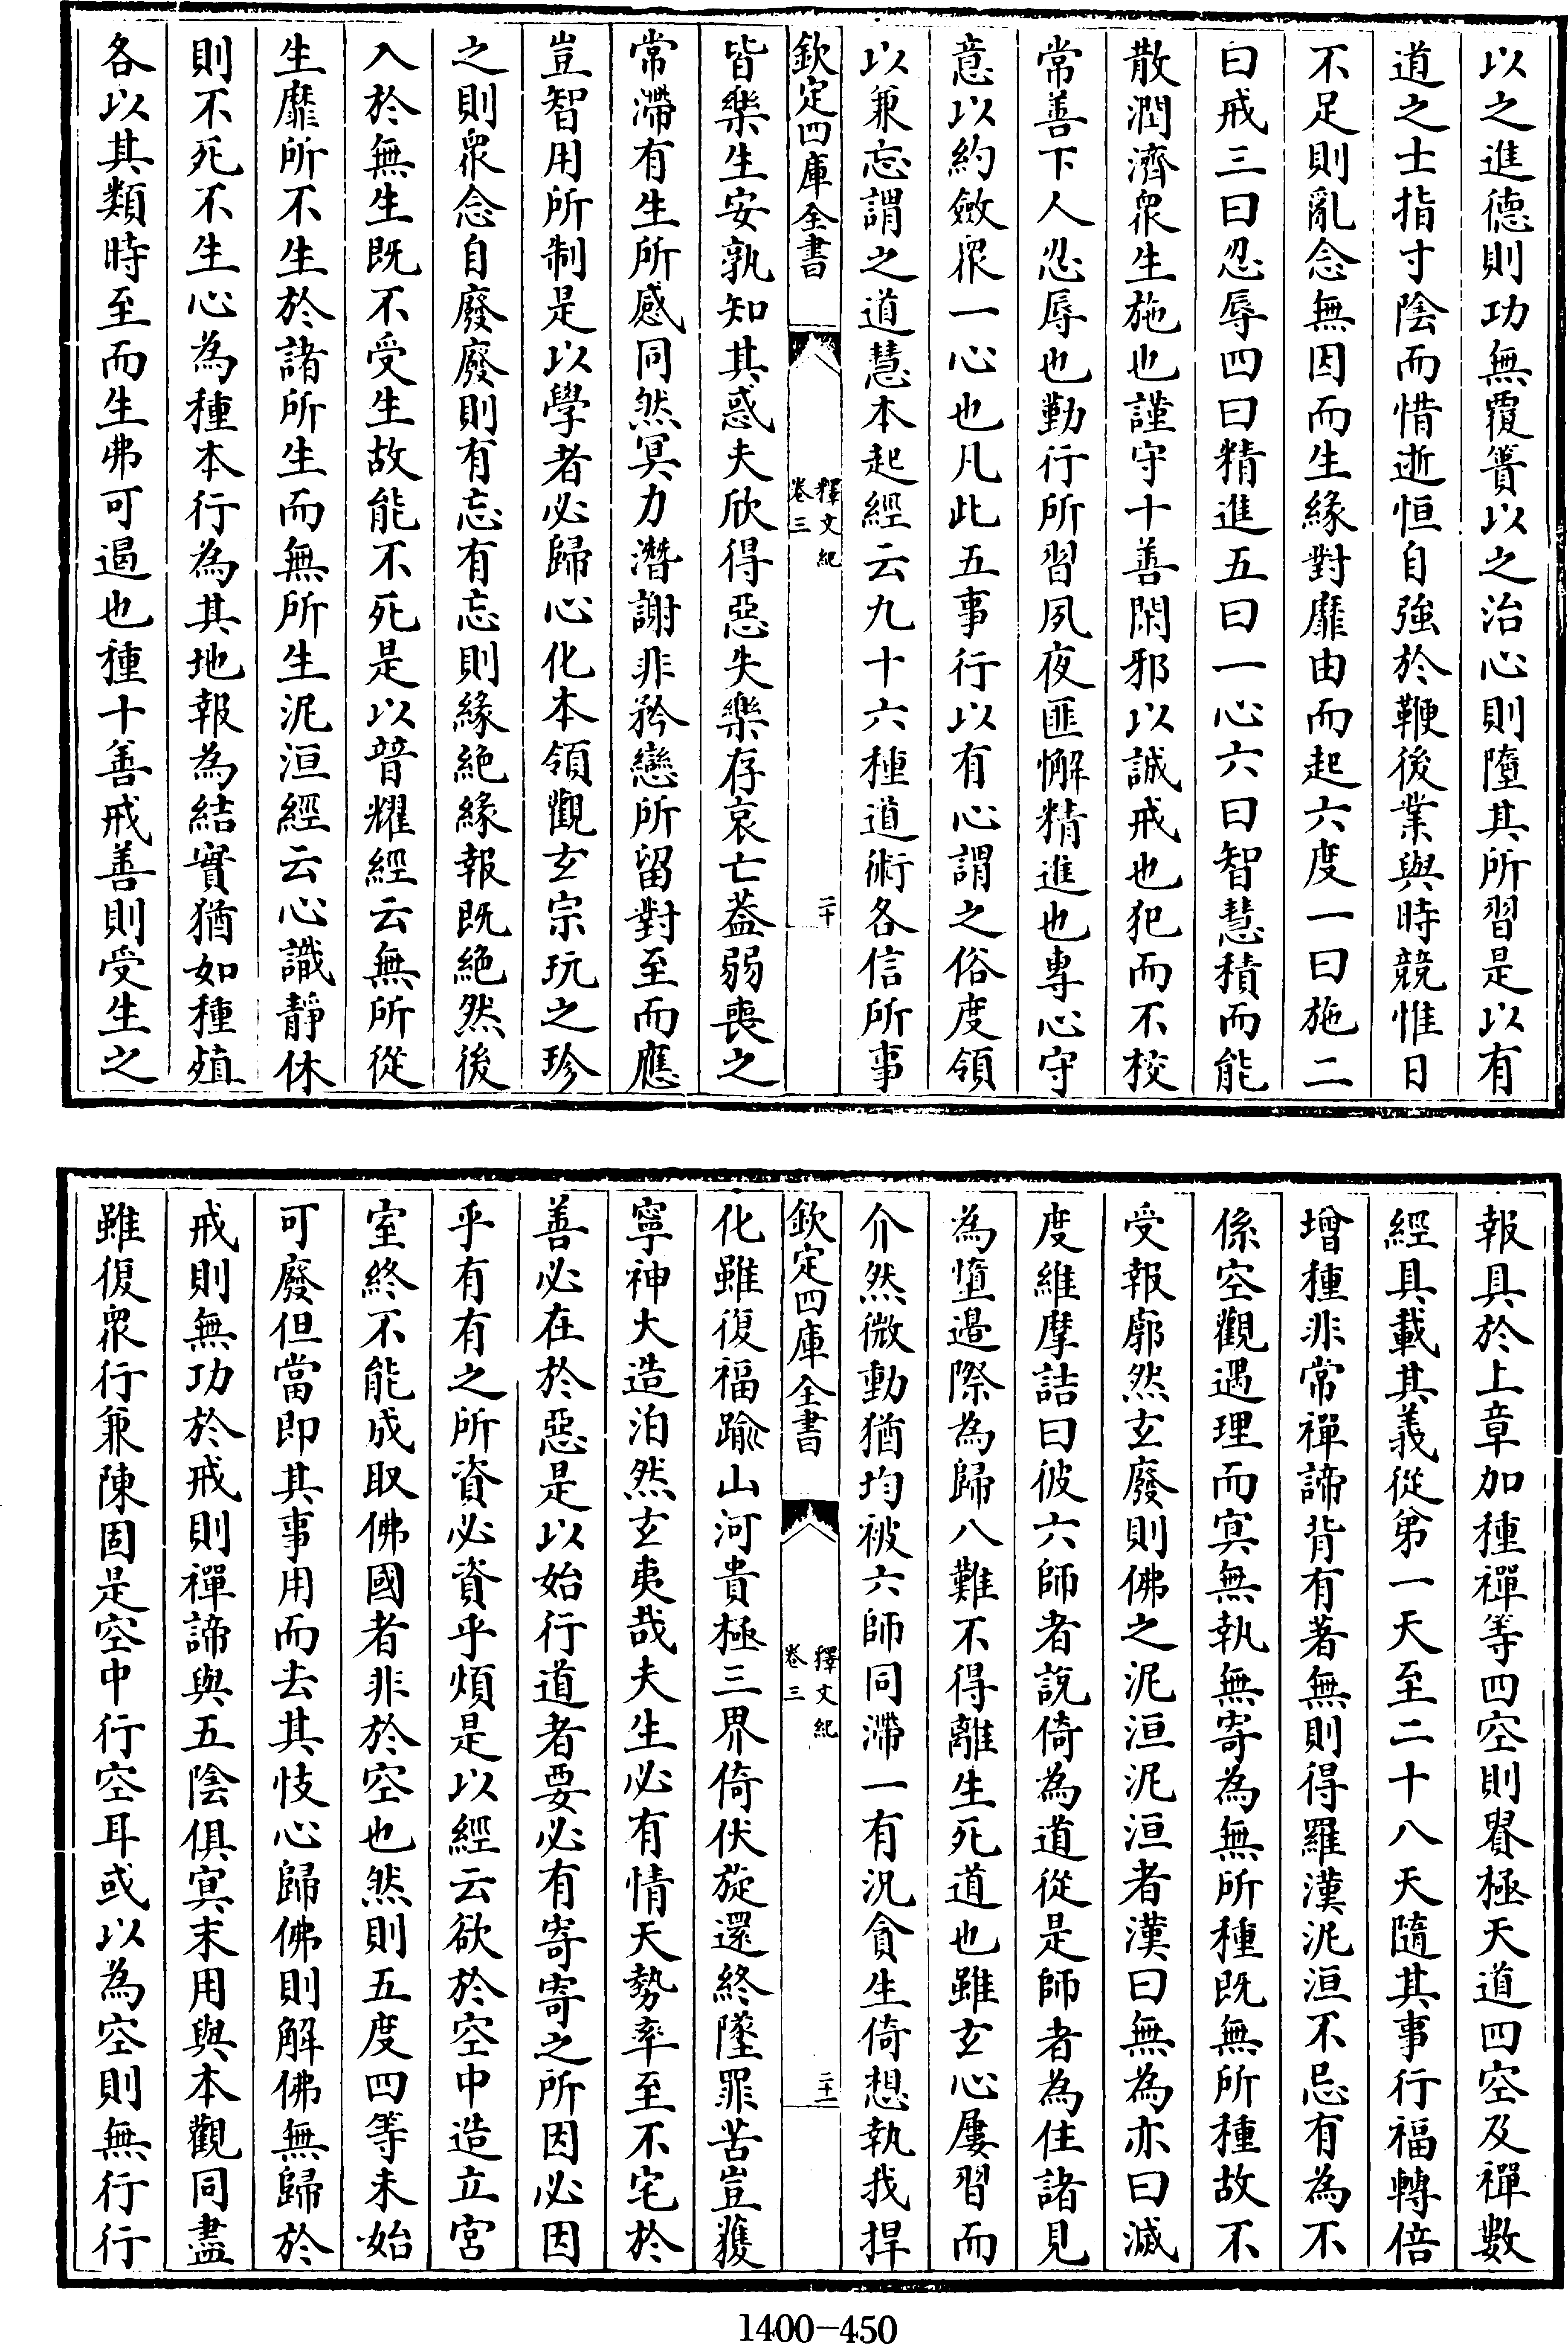 以之進德則功無覆簣以之治心則墮其所習是以有
道之士指寸陰而惜逝恒自強於鞭後業與時競惟日
不足則亂念無因而生緣對靡由而起六度一曰施二
曰戒三曰忍辱四曰精進五曰一心六曰智慧積而能
散潤濟衆生施也謹守十善閑邪以誠戒也犯而不校
常善下人忍辱也勤行所習夙夜匪懈精進也專心守
意以約斂衆一心也凡此五事行以有心謂之俗度領
以兼忘謂之道慧本起經云九十六種道術各信所事
欽定四庫全書
釋文紀
卷三
二十
皆樂生安孰知其惑夫欣得惡失樂存哀亡葢弱喪之
常滯有生所感同然冥力潛謝非矜戀所留對至而應
豈智用所制是以學者必歸心化本領觀玄宗玩之珍
之則衆念自廢廢則有忘有忘則緣絶緣報既絶然後
入於無生既不受生故能不死是以普耀經云無所從
生靡所不生於諸所生而無所生泥洹經云心識靜休
則不死不生心為種本行為其地報為結實猶如種殖
各以其類時至而生弗可遏也種十善戒善則受生之
報具於上章加種禪等四空則貴極天道四空及禪數
經具載其義從第一天至二十八天隨其事行福轉倍
增種非常禪諦背有著無則得羅漢泥洹不忌有為不
係空觀遇理而冥無執無寄為無所種既無所種故不
受報廓然玄廢則佛之泥洹泥洹者漢曰無為亦曰滅
度維摩詰曰彼六師者說倚為道從是師者為住諸見
為墮邊際為歸八難不得離生死道也雖玄心屢習而
介然微動猶均被六師同滯一有況貪生倚想執我捍
欽定四庫全書
釋文紀
卷三
二十一
化雖復福踰山河貴極三界倚伏旋還終墜罪苦豈獲
寧神大造泊然玄夷哉夫生必有情天勢率至不宅於
善必在於惡是以始行道者要必有寄寄之所因必因
乎有有之所資必資乎煩是以經云欲於空中造立宮
室終不能成取佛國者非於空也然則五度四等未始
可廢但當即其事用而去其忮心歸佛則解佛無歸於
戒則無功於戒則禪諦與五陰俱冥末用與本觀同盡
雖復衆行兼陳固是空中行空耳或以為空則無行行
1400-450